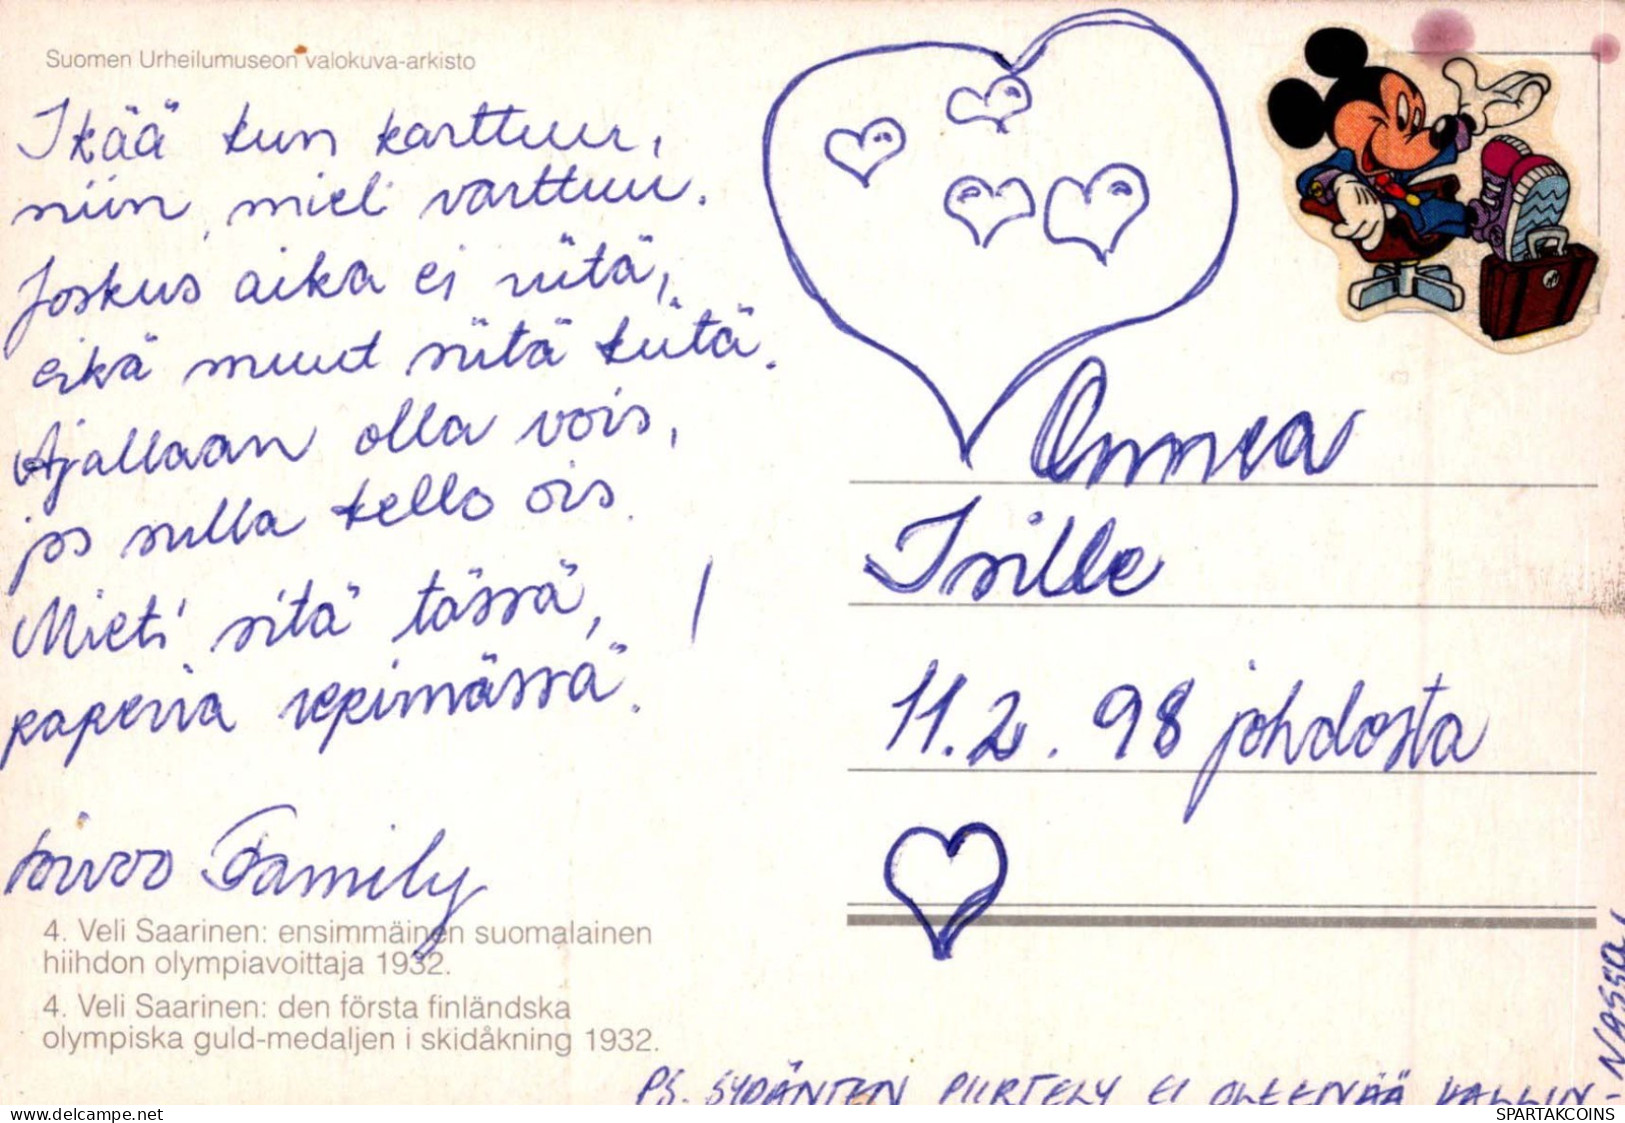 Suomen Urheilumuseon valokuva-arkisto
Ikää kun karttuu,
niin mieli varttuu.
Joskus aika ei riitä,
eikä muut siitä kiitä.
Ajallaan olla vois,
jos sulla kello ois.
Mieti sitä tässä, !
paperia repimässä.
Family
4. Veli Saarinen: ensimmäinen suomalainen
hiihdon olympiavoittaja 1932.
4. Veli Saarinen: den första finländska
olympiska guld-medaljen i skidåkning 1932.
Onnea
Isille
11.2.98 johdosta
PS. SYDÄNTEN PIIRTELY EI OLEENÄÄ HALLIN-
NASSA!
SPARTAKCOINS
www.delcampe.net